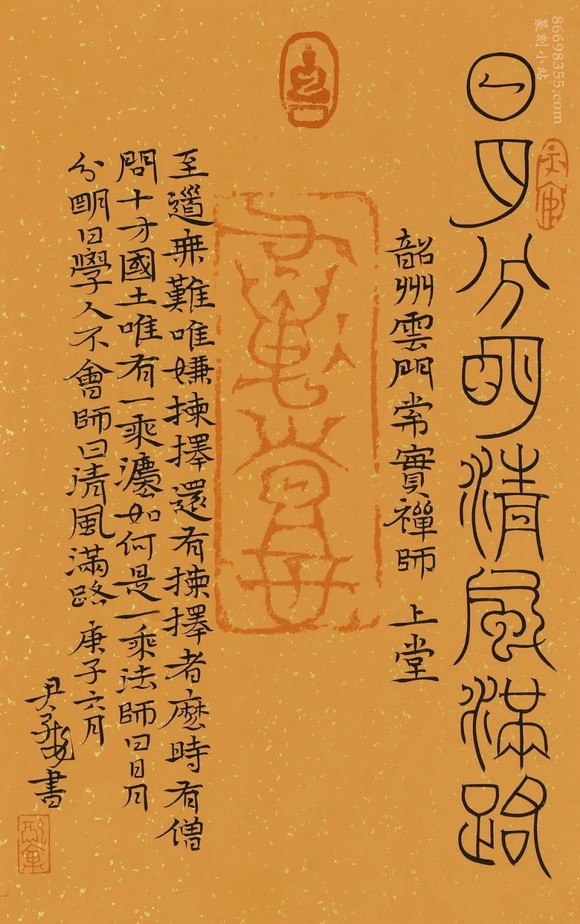 日月分明清風滿路
韶州雲門常實禪師 上堂
至道無難唯嫌揀擇還有揀擇者麼時有僧
問十方國土唯有一乘灋如何是一乘法師曰日月
分明曰學人不會師曰清風滿路 庚子六月
書
86698355.com
篆刻小站